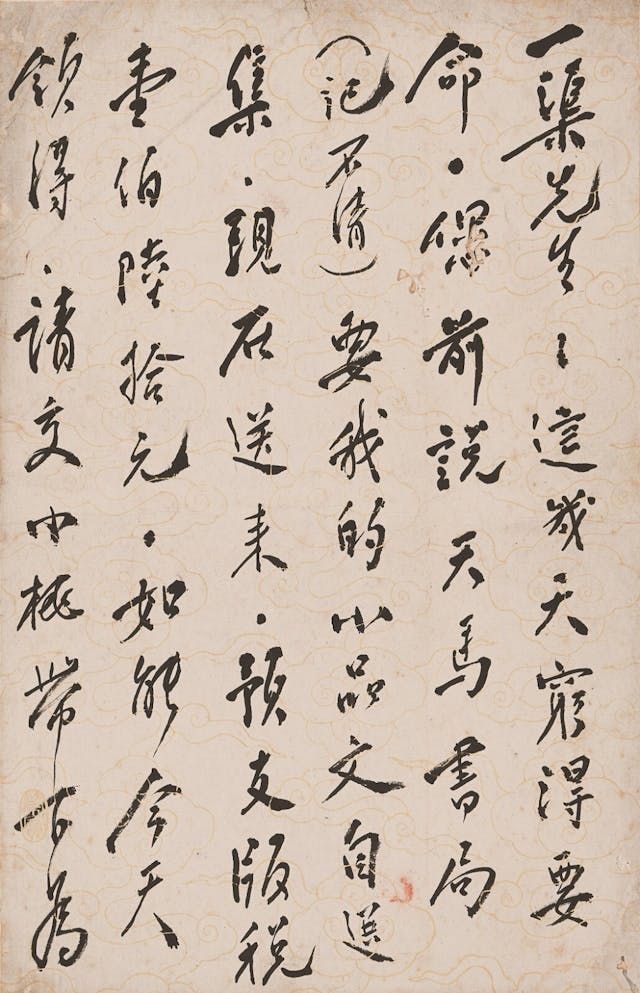 一渠先生：這幾天窮得要
命．前說天馬書局
（記不清）要我的小品文自選
集．現在送来．預支版税
壹伯陸拾元．如能今天
領得．請交小桃帶下為